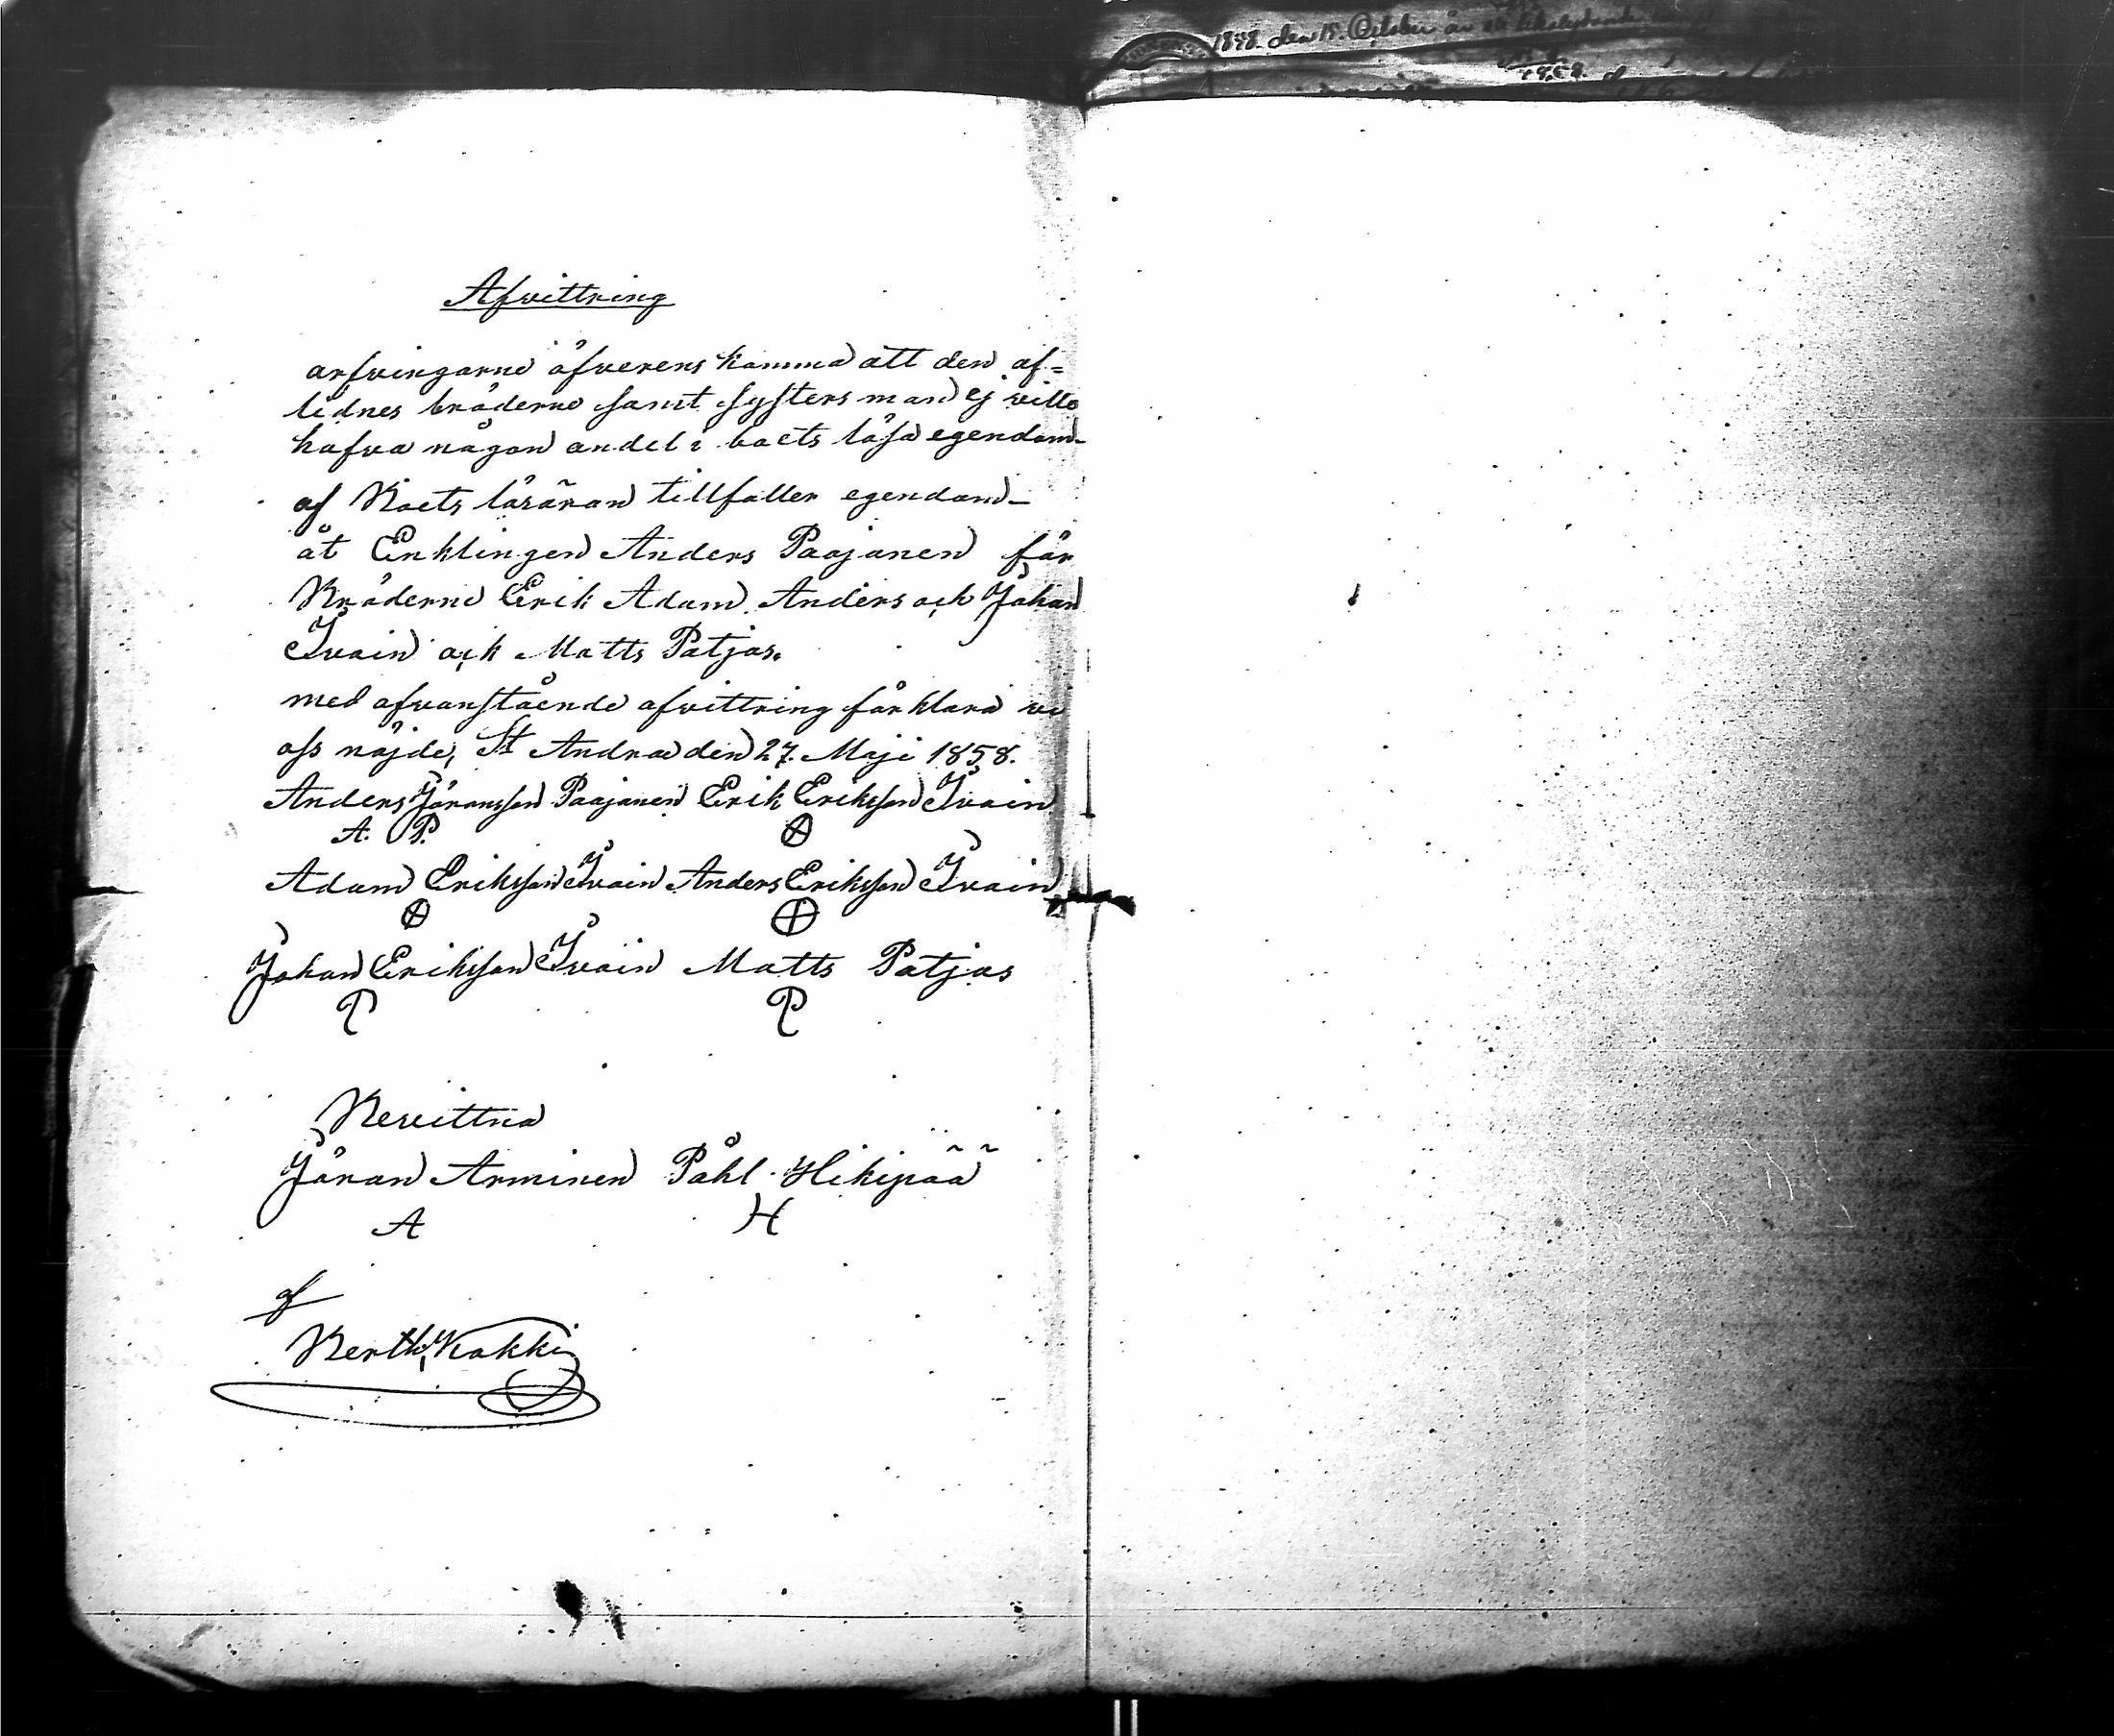 1848. den 15. October
Afvittring
arfvingarne öfverens komma att den af=
lidnes bröderne samt systers man ej ville
hafva någon andel i boets lösa egendom
af Boets lösöran tillfaller egendom
åt Enklingen Anders Paajanen för
Bröderne Erik Adam Anders och Johan
Ivain och Matts Patjas.
med ofvanstående afvittring förklara vi
oss nöjde, St Andrea den 27. Maji 1858.
Anders Jöransson Paajanen Erik Eriksson Ivain
A. P.
Adam Eriksson Ivain Anders Eriksson Ivain
Johan Eriksson Ivain Matts Patjas
P P
Bevittna
Jöran Arminen Påhl Hikipää
A H
af
Berth. Kokki